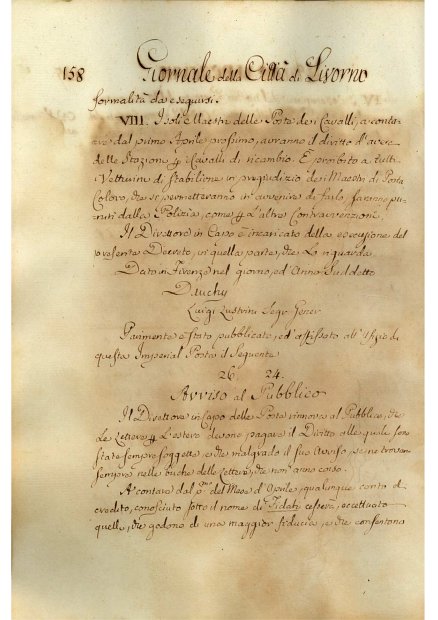 158 Giornale della Città di Livorno
formalità da eseguirsi.
VIII. I soli Maestri delle Poste dei Cavalli, a contare
dal primo Aprile prossimo, avranno il diritto d'avere
delle Stazioni i Cavalli di ricambio. È proibito a tutti
Vetturini di stabilirne in pregiudizio dei Maestri di Posta
Coloro, che si permetteranno in avvenire di farlo, saranno pu-
niti dalla Polizia, come l'altre Contravvenzioni.
Il Direttore in Capo è incaricato della esecuzione del
presente Decreto, in quella parte, che Lo riguarda.
Dato in Firenze nel giorno, ed Anno Suddetto
Dauchy
Luigi Lustrini Segr Gener
Parimente è stato pubblicato, ed affissato all' Ufizio di
questa Imperial Posta il Seguente
26 24.
Avviso al Pubblico
Il Direttore in Capo delle Poste rinnova al Pubblico, che
Le Lettere l'estero devono pagare il Diritto alle quale sono
state sempre soggette, e che malgrado il suo Avviso, se ne trovan
sempre nelle buche delle Lettere, che non anno corso.
A contare dal pmo del Mese d'Aprile, qualunque conto di
credito, conosciuto sotto il nome di cesserà, eccettuato
quelli, che godono di una maggior fiducia, e che consentono